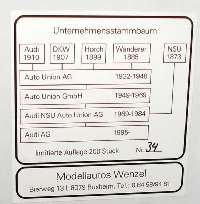 Unternehmensstammbaum
Audi DKW Horch Wanderer NSU
1910 1907 1899 1885 1873
Auto Union AG 1932-1948
Auto Union GmbH 1949-1969
Audi NSU Auto Union AG 1969-1984
Audi AG 1985-
limitierte Auflage 200 Stück Nr. 34
Modellautos Wenzel
Bierweg 13 8079 Buxheim, Tel.: